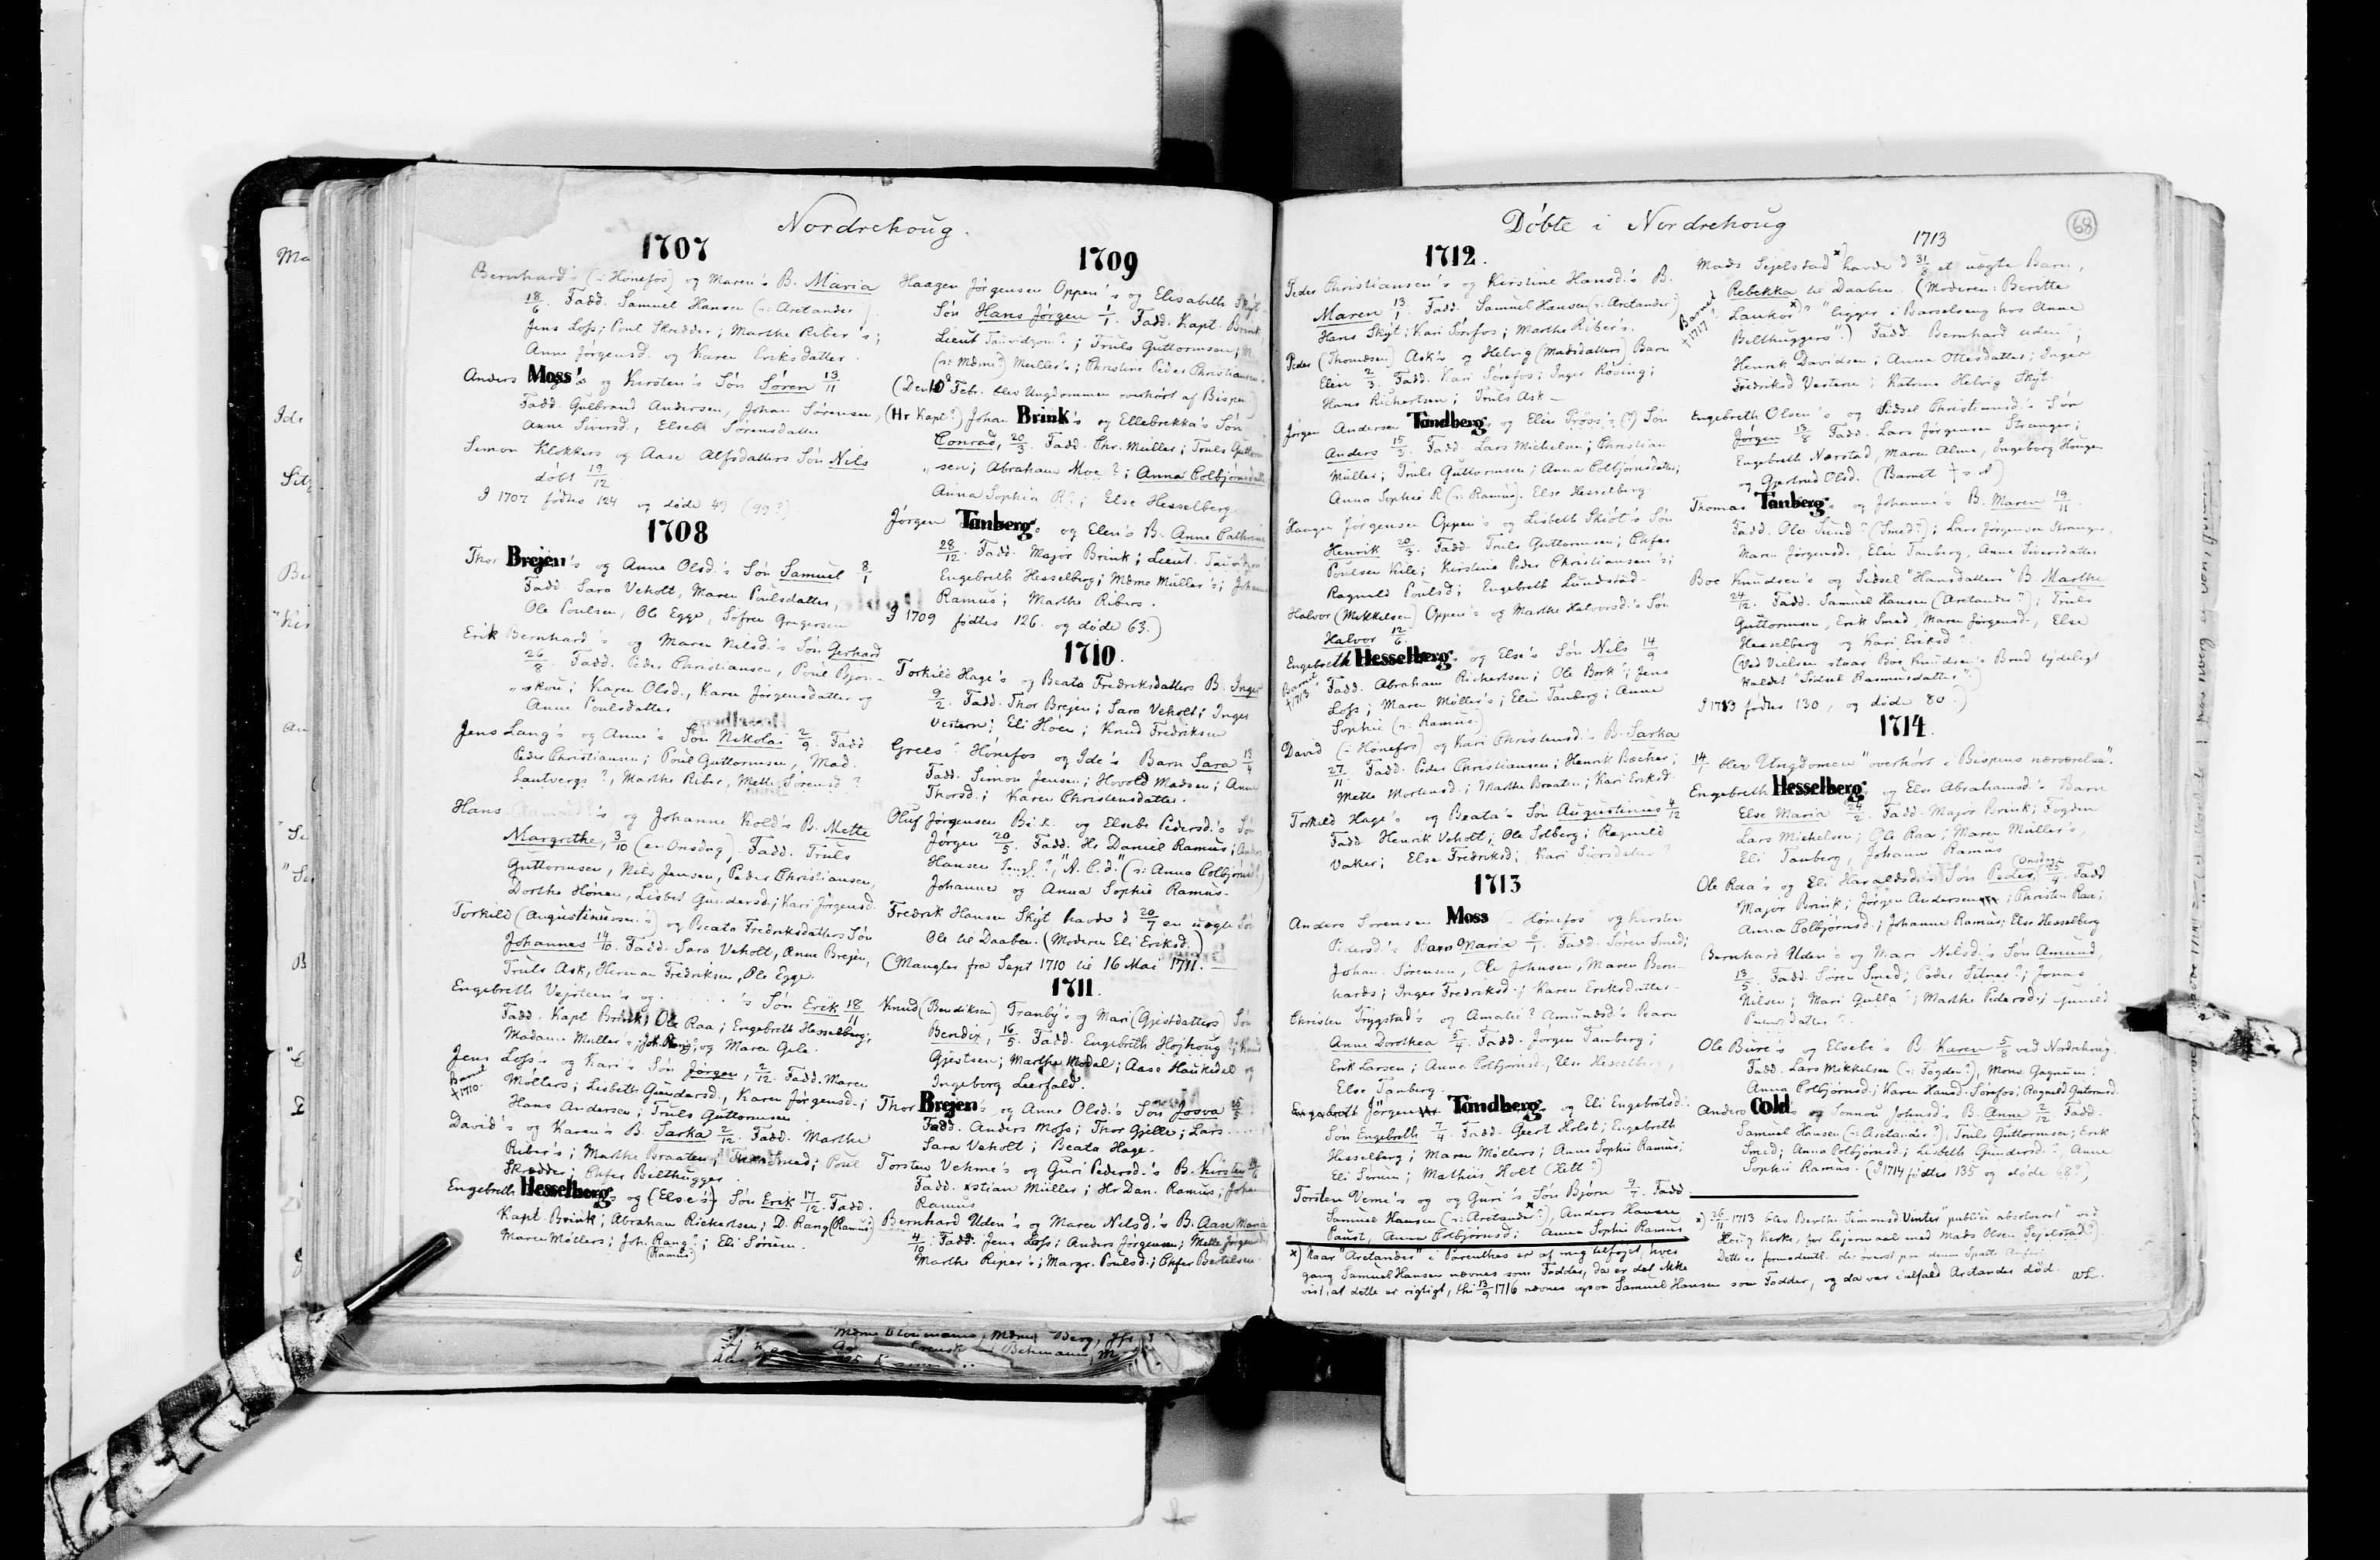 Nordrehoug.
1707
Bernhard's (i Hønefos) og Maren's B. Maria
18/6. Fadd. Samuel Hansen (ɔ: Aretander)
Jens Loss; Poul Skredder; Marthe Riber's;
Anne Jørgensd. og Karen Eriksdatter.
Anders Moss's og Kirsten's Søn Søren 13/11
Fadd. Gulbrand Andersen, Johan Sørensen,
Anne Siversd., Elsebe Sørensdatter
Simon Klokkers og Aase Alfsdatters Søn Nils
døbt 19/12
I 1707 fødtes 124 og døde 49 (99?)
1708
Thor Brejen's og Anne Olsd.'s Søn Samuel 8/1
Fadd. Sara Veholt, Maren Poulsdatter,
Ole Poulsen, Ole Egge, Sofren Gregersen
Erik Bernhard's og Maren Nilsd.'s Søn Gerhard
26/8. Fadd. Peder Christiansen, Poul Bjørn-
skou; Karen Olsd., Karen Jørgensdatter og
Anne Poulsdatter
Jens Lang's og Anne's Søn Nikolai 2/9. Fadd
Peder Christiansen; Poul Guttormsen, Mad.
Lautvergs?, Marthe Riber, Mette Sørensd.?
Hans 's og Johanne Kold's B. Mette
Margrethe, 3/10 (en Onsdag). Fadd. Truls
Guttormsen, Nils Jensen, Peder Christiansen,
Dorthe Hønen, Lisbet Gundersd.; Kari Jørgensd.
Torkild (Augustinussen's) og Beata Fredriksdatters Søn
Johannes 14/10. Fadd. Sara Veholt, Anne Brejen,
Truls Ask, Herman Fredriksen, Ole Egge.
Engebreth Vejsteen's og . . . . . 's Søn Erik 18/11
Fadd. Kapt. Brink; Ole Raa; Engebreth Hesselberg;
Madame Müller's; og Maren Gele.
Jens Loss's og Kari's Søn Jørgen, 2/12. Fadd. Maren
Barnet † 1710.
Møllers; Lisbeth Gundersd., Karen Jørgensd.;
Hans Andersen; Truls Guttormsen.
David's og Karen's B. Sarka 2/12. Fadd. Marthe
Riber's; Marthe Braaten; Smed; Poul
Skrædder; Chfer Bilthugger.
Engebreth Hesselberg's og (Else's) Søn Erik 17/12. Fadd.
Kapt. Brink; Abraham Rickertsen; D. Rang (Ramus)
Maren Møllers; Joh. Rang?; Eli Sørum.
(Ramus)
1709
Haagen Jørgensen Oppen's og Elisabeth Skyt
Søn Hans Jørgen 1/1. Fadd. Kapt. Brink,
Lieut Tauvidzon?; Truls Guttormsen; M.
(ɔ: Mdme?) Muller's; Christine Peder Christiansen's
(Den 10d Febr. blev Ungdommen overhørt af Bispen)
(Hr Kapt?) Johan Brink's og Ellebrekka's Søn
Conrad, 20/3. Fadd. Chr. Müller; Truls Guttorm
sen; Abraham Moe?; Anna Colbjørnsdatter
Anna Sophia R?; Else Hesselberg.
Jørgen Tanberg's og Elen's B. Anne Cathrine
28/12. Fadd. Major Brink; Lieut. Tauvidzon?
Engebreth Hesselberg; Mdme Müller's; Johanne
Ramus; Marthe Ribers.
I 1709 fødtes 126. og døde 63.)
1710.
Torkild Hage's og Beata Fredriksdatters B. Inger
9/2. Fadd. Thor Brejen; Sara Veholt; Inger
Vestern; Eli Hoen; Knud Fredriksen
Grees? Hønefos og Ide's Barn Sara 13/4
Fadd. Simon Jensen; Hovold Madsen; Anne
Thorsd.; Karen Christensdatter.
Oluf Jørgensen og Elsebe Pedersd.'s Søn
Jørgen 20/5. Fadd. Hr Daniel Ramus; Anders
Hansen ?, "A. C. d." (ɔ: Anna Colbjørnsd)
Johanne og Anna Sophie Ramus.
Fredrik Hansen Skyt havde d 20/7 en uægte Søn
Ole til Daaben. (Moderen Eli Eriksd.)
(Mangler fra Sept 1710 til 16 Mai 1711.
1711.
Knud (Bendiksen) Tranby's og Mari (Gjestdatters) Søn
Bendix, 16/5. Fadd. Engebreth Hojhoug; Knud
Gjestsen; Marthe Modal; Aase Haukedal og
Ingeborg Leerfald.
Thor Brejen's og Anne Olsd.'s Søn Josva
Fadd. Anders Moss; Thor Gjelle; Lars . . . .
Sara Veholt; Beata Hage.
Torsten Vehme's og Guri Pedersd.'s B. Kirsten
Fadd. xstian Müller; Hr Dan. Ramus; Johanne
Ramus
Bernhard Uden's og Maren Nilsd.'s B. Aase Maria
4/10. Fadd. Jens Loss; Anders Jørgensen; Mette Jørgensd;
Marthe Riper's; Margr. Poulsd.; Chfer Bertelsen.
Døbte i Nordrehoug
68
1712.
Peder Christiansen's og Kirstine Hansd.'s B.
Maren 13/1. Fadd. Samuel Hansen (ɔ: Aretander)
Hans Skyt; Kari Sørefos; Marthe Riber's.
Peder (Thomæsen) Ask's og Helvig (Madsdatters) Barn
Elen 2/3. Fadd. Kari Sørefos; Inger Rosing;
Hans Richertsen; Truls Ask —
Jørgen Andersen Tandberg's og Elin Prøss's (?) Søn
Anders 15/3. Fadd. Lars Michelsen; Christian
Müller; Truls Guttormsen; Anna Colbjørnsdatter;
Anna Sophie R (ɔ: Ramus). Else Hesselberg.
Haagen Jørgensen Oppen's og Lisbeth Skiøt's Søn
Henrik 20/3. Fadd. Truls Guttormsen; Chfer
Poulsen Kile; Kirstine Peder Christiansen's;
Ragnild Poulsd; Engebreth Lundstad.
Halvor (Mikkelsen) Oppen's og Marthe Halvorsd.'s Søn
Halvor 12/6.
Engebreth Hesselberg's og Else's Søn Nils 14/9
Barnet † 1713
Fadd. Abraham Rickertsen; Ole Bork; Jens
Loss; Maren Müller's; Elin Tanberg; Anne
Sophie (ɔ: Ramus.)
David (i Hønefos) og Kari Christensd.'s B. Sarka
27/11. Fadd. Peder Christiansen; Henrik Bæcher;
Mette Mortensd.; Marthe Braaten; Kari Eriksd.
Torkild Hage's og Beata's Søn Augustinus 4/12
Fadd Henrik Veholt; Ole Solberg; Ragnild
Vaker; Else Fredriksd; Kari Siorsdatter
1713
Anders Sorensen Moss "Hønefos" og Kirsten
Pedersd.'s Barn Maria 6/1. Fadd. Søren Smed;
Johan Sørensen, Ole Johnsen, Maren Bern-
hards; Inger Fredriksd.; Karen Eriksdatter.
Christen Trygstad's og Amalie? Amundsd's Barn
Anne Dorothea 5/4. Fadd. Jørgen Tanberg;
Erik Larsen; Anna Colbjørnsd, Else Hesselberg,
Else Tanberg.
Jørgen Tandberg's og Eli Engebretsd.'s
Søn Engebreth 7/4. Fadd. Geert Holst; Engebreth
Hesselberg; Maren Müllers; Anne Sophie Ramus;
Eli Sørum; Mathiis Holt (Hett?)
Torsten Veme's og og Guri's Søn Bjørn 9/7. Fadd.
Samuel Hansen (ɔ: Aretander x?), Anders Hansen
Paust, Anna Colbjørnsd; Anna Sophie Ramus
x) Naar "Aretander" i Parenthes er af mig tilføjet, hver
gang Samuel Hansen nævnes som Fadder, da er det ikke
vist, at dette er rigtigt, thi 13/9 1716 nævnes ogsaa Samuel Hansen som Fadder, og da var ialfald Aretander død. WL.
1713
Mads Sejelstad x) havde d 31/8 et uægte Barn,
Rebekka til Daaben. (Moderen: Beritte
Barnet † 1717?
Laukor x)? "ligger i Barselseng hos Anne
Bilthuggers".) Fadd. Bernhard uden?;
Henrik Davidsen; Anne Ottesdatter; Inger
Fredriksd Vestern; Katrine Helvig Skyt.
Engebreth Olsen's og Sidsel Christiansd.'s Søn
Jørgen 13/8 Fadd. Lars Jørgensen Stranger;
Engebreth Nærstad, Maren Alme, Ingeborg Hougen
og Gjertrud Olsd. (Barnet † s. A)
Thomas Tanberg's og Johanne's B. Maren 19/11.
Fadd. Ole Sund? (Smed?); Lars Jørgensen Stranger,
Maren Jørgensd., Elin Tanberg, Anne Siversdatter
Boe Knudsen's og Sidsel "Hansdatters" B. Marthe
24/12. Fadd. Samuel Hansen (Aretander?); Truls
Guttormsen, Erik Smed, Maren Jørgensd., Else
Hesselberg og Kari Eriksd?
(Ved Vielsen staar Boe Knudsen's Brud tydeligt
kaldet "Sidsel Rasmusdatter".)
I 1713 fødtes 130, og døde 80.)
1714.
14/1 blev Ungdomen "overhørt i Bispens nærværelse".
Engebreth Hesselberg's og Else Abrahamsd.'s Barn
Else Maria 24/2. Fadd. Major Brink; Fogden
Lars Michelsen; Ole Raa; Maren Müller's,
Eli Tanberg, Johanne Ramus
Ole Raa's og Eli Haraldsd.'s Søn Peder, (Onsdag) 25/4. Fadd
Major Brink; Jørgen Andersen; Christen Raa;
Anna Colbjørnsd.; Johanne Ramus; Else Hesselberg
Bernhard Uden's og Mari Nelsd.'s Søn Amund,
13/5. Fadd. Søren Smed; Peder Sitner?; Jonas
Nilsen; Mari Gulla; Marthe Pedersd.; Gunild
Ole Bure's og Elsebe's B. Karen 5/8 ved Nordrehoug.
Fadd. Lars Mikkelsen (ɔ: Fogden?), Monr. Gagnum;
Anna Colbjørnsd.; Karen Hansd. Sørefos; Ragnild Gutormsd.
Anders Cold's og Sonnou Johnsd's B. Anne 2/12 Fadd.
Samuel Hansen (ɔ: Aretander?), Truls Guttormsen; Erik
Smed; Anna Colbjørnsd.; Lisbeth Gundersd.?, Anne
Sophie Ramus. (I 1714 fødtes 135 og døde 68?)
x) 26/11 1713 blev Berthe Simonsd Vinter "publicè absolveret" ved
Houg Kirke, for Lejermaal med Mads Olsen Sejelstad?).
Dette er formodentl. de øverst paa denne Spalte Anførte